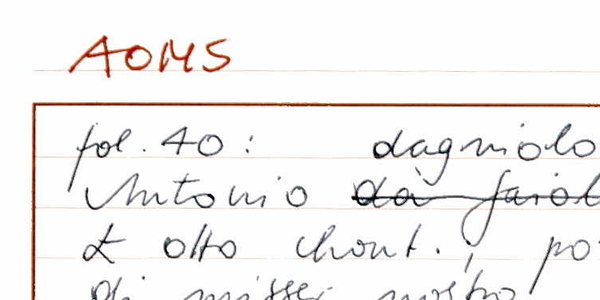 AOMS
fol. 40: dagniolo
Antonio da faiol
£ otto chont.; po
di misser nostro